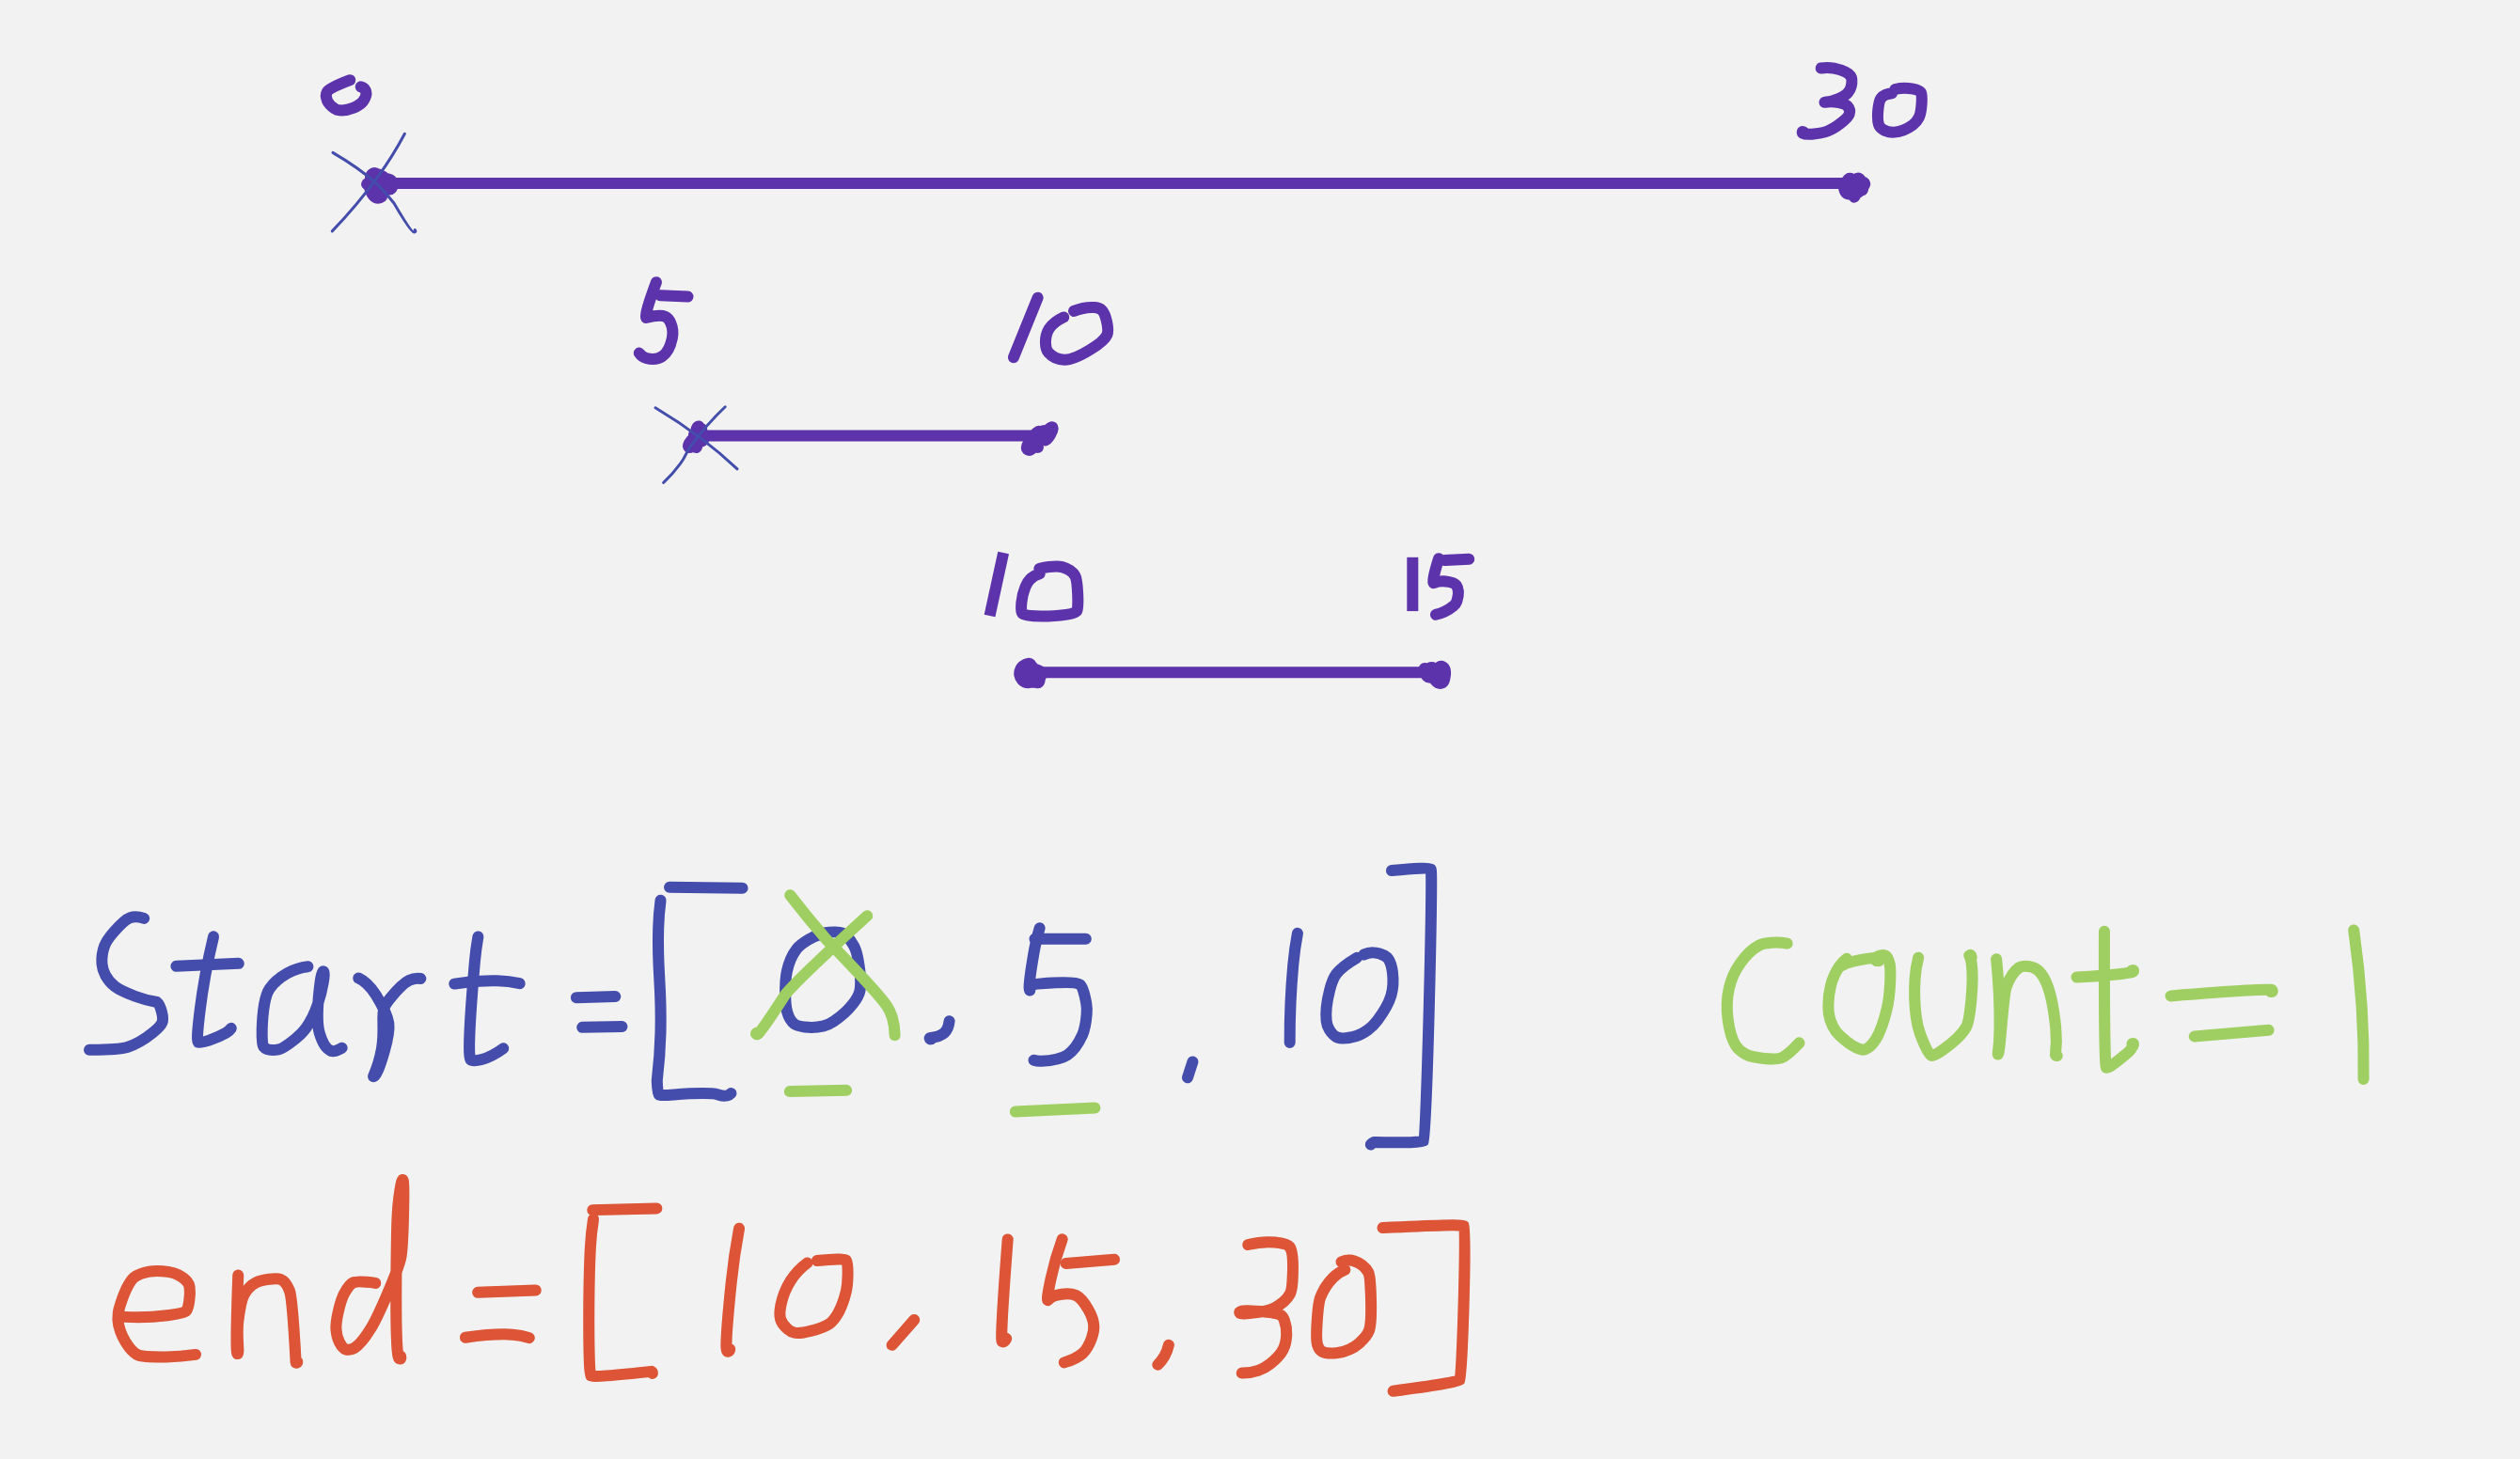 0 30
5 10
10 15
Start = [0, 5, 10] Count = 1
end = [10, 15, 30]